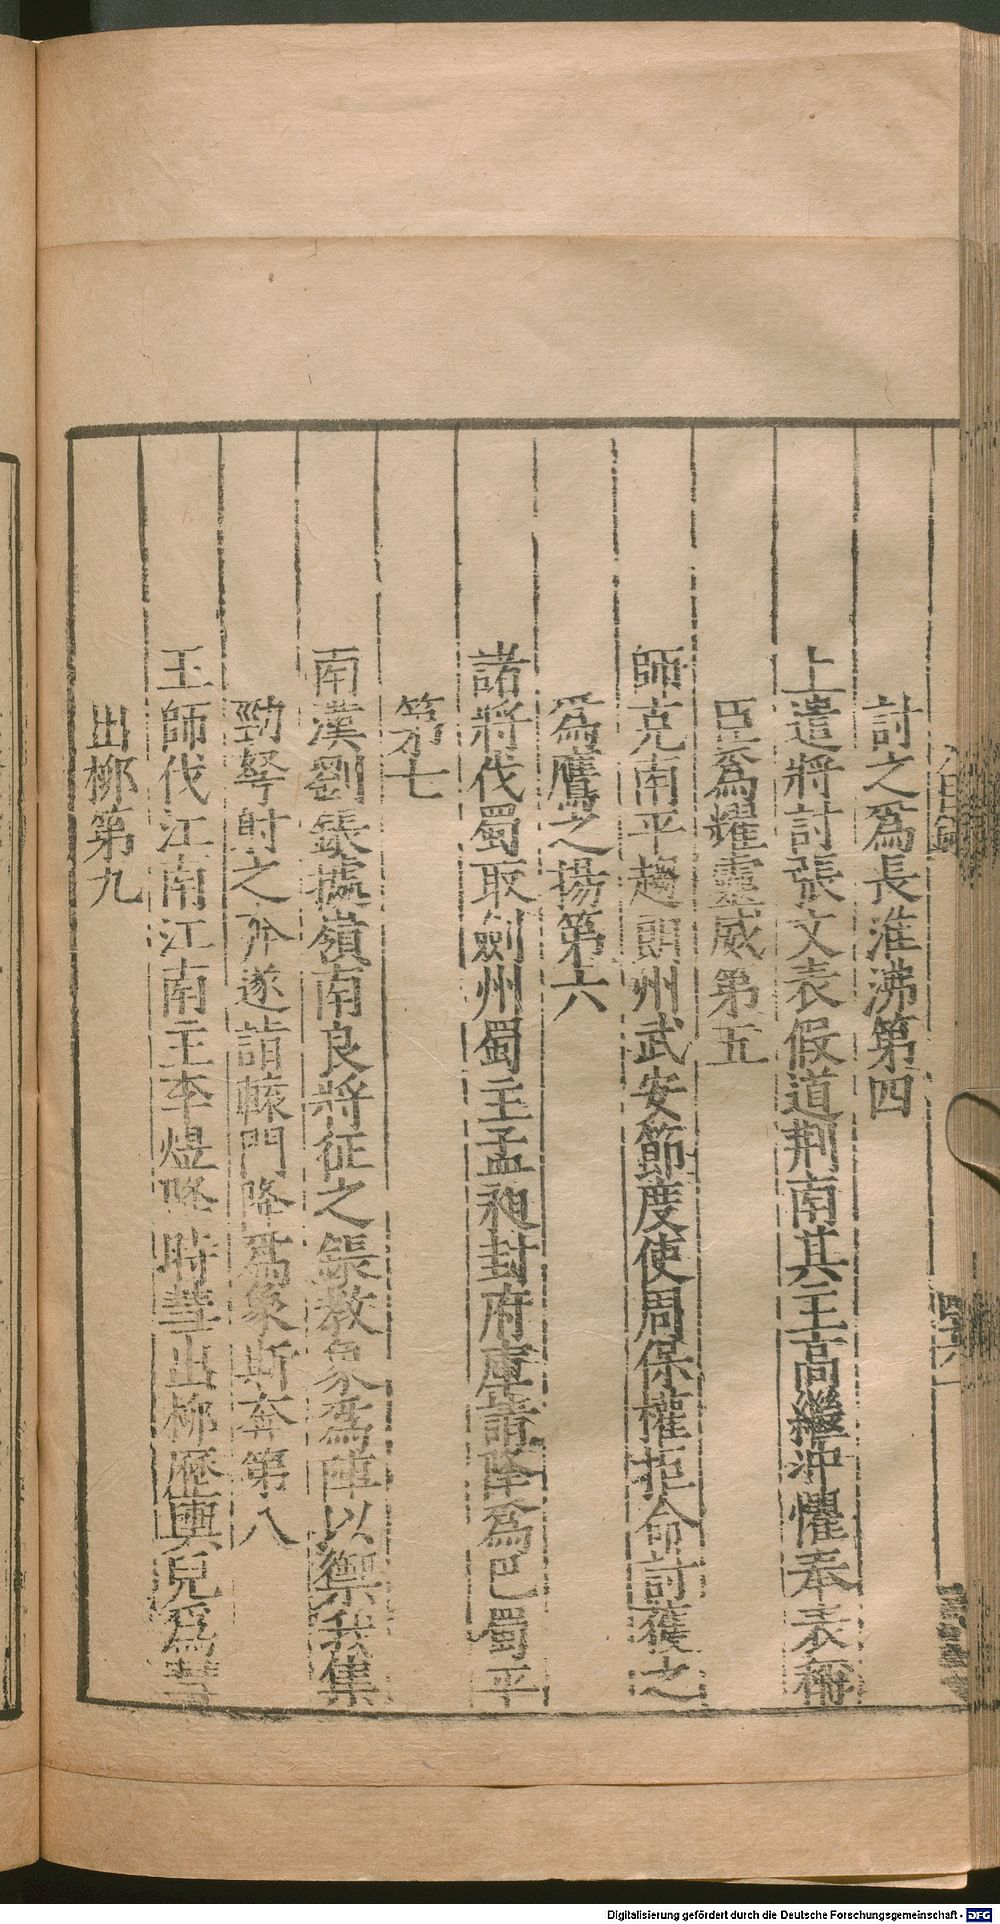 討之爲長淮沸第四
上遣將討張文表假道荆南其王高繼冲懼奉表稱
臣爲耀靈威第五
師克南平趨朗州武安節度使周保權拒命討獲之
爲鷹之揚第六
諸將伐蜀取劍州蜀主孟昶封府庫請降爲巴蜀平
第七
南漢劉鋹據嶺南良將征之鋹教象爲陣以禦我集
勁弩射之奔遂詣轅門降爲象斯奔第八
王師伐江南江南主李煜降時彗出柳歷輿鬼爲彗
出柳第九
Digitalisierung gefördert durch die Deutsche Forschungsgemeinschaft - DFG